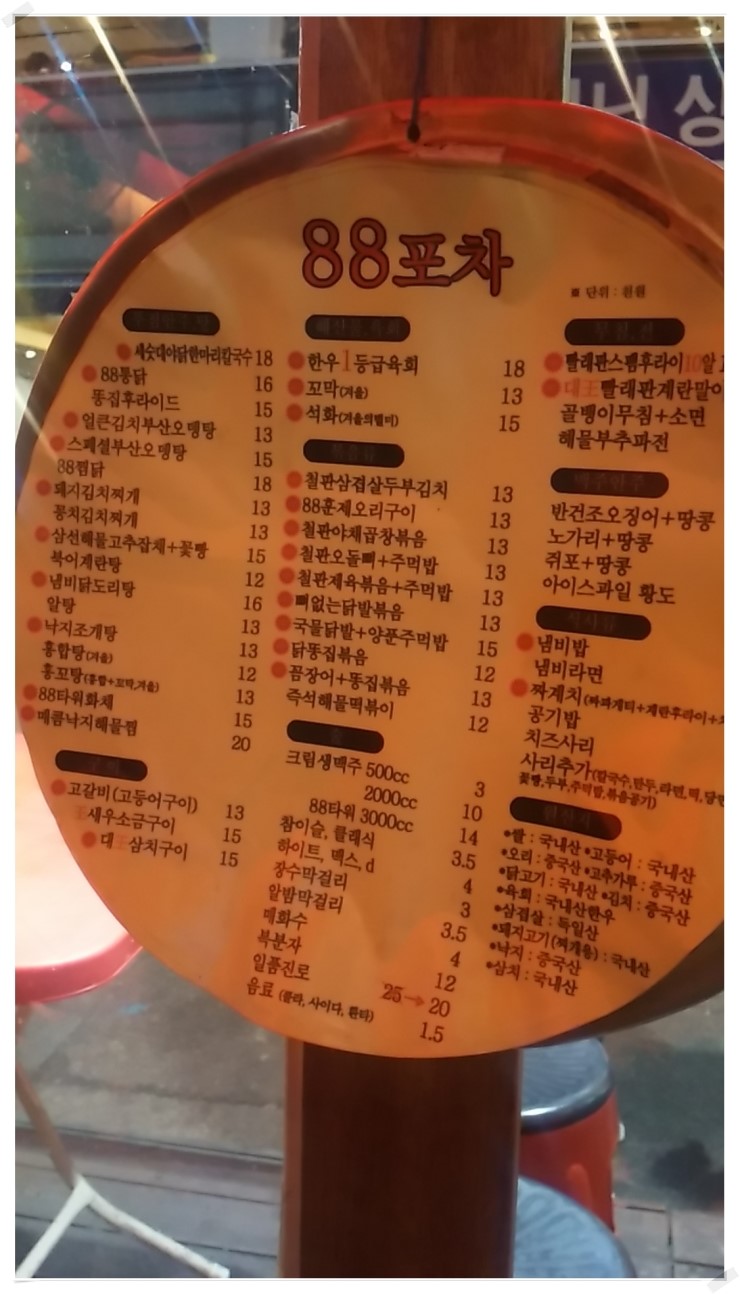 88포차
단위 : 천원
세숫대야닭한마리칼국수 18
88통닭 16
똥집후라이드 15
얼큰김치부산오뎅탕 13
스페셜부산오뎅탕 15
88찜닭 18
돼지김치찌개 13
꽁치김치찌개 13
삼선해물고추잡채+꽃빵 15
북어계란탕 12
냄비닭도리탕 16
알탕 13
낙지조개탕 13
홍합탕(겨울) 12
홍꼬탕(홍합+꼬막,겨울) 13
88타워화채 15
매콤낙지해물찜 20
고갈비(고등어구이) 13
새우소금구이 15
대王삼치구이 15
한우1등급육회 18
꼬막(겨울) 13
석화(겨울의별미) 15
철판삼겹살두부김치 13
88훈제오리구이 13
철판야채곱창볶음 13
철판오돌뼈+주먹밥 13
철판제육볶음+주먹밥 13
뼈없는닭발볶음 13
국물닭발+양푼주먹밥 15
닭똥집볶음 12
꼼장어+똥집볶음 13
즉석해물떡볶이 12
술
크림생맥주 500cc 3
2000cc 10
88타워 3000cc 14
참이슬, 클래식 3.5
하이트, 맥스, d 4
장수막걸리 3
알밤막걸리 3.5
매화수 4
복분자 12
일품진로 25→20
음료 (콜라, 사이다, 환타) 1.5
무침,전
빨래판스팸후라이10알
대王빨래판계란말이
골뱅이무침+소면
해물부추파전
맥주안주
반건조오징어+땅콩
노가리+땅콩
쥐포+땅콩
아이스파일 황도
식사류
냄비밥
냄비라면
짜계치(짜파게티+계란후라이+
공기밥
치즈사리
사리추가(칼국수,만두,라면,떡,당면
꽃빵,두부,주먹밥,볶음공기)
원산지
•쌀 : 국내산 •고등어 : 국내산
•오리 : 중국산 •고추가루 : 중국산
•닭고기 : 국내산 •김치 : 중국산
•육회 : 국내산한우
•삼겹살 : 독일산
•돼지고기(찌개용) : 국내산
•낙지 : 중국산
•삼치 : 국내산